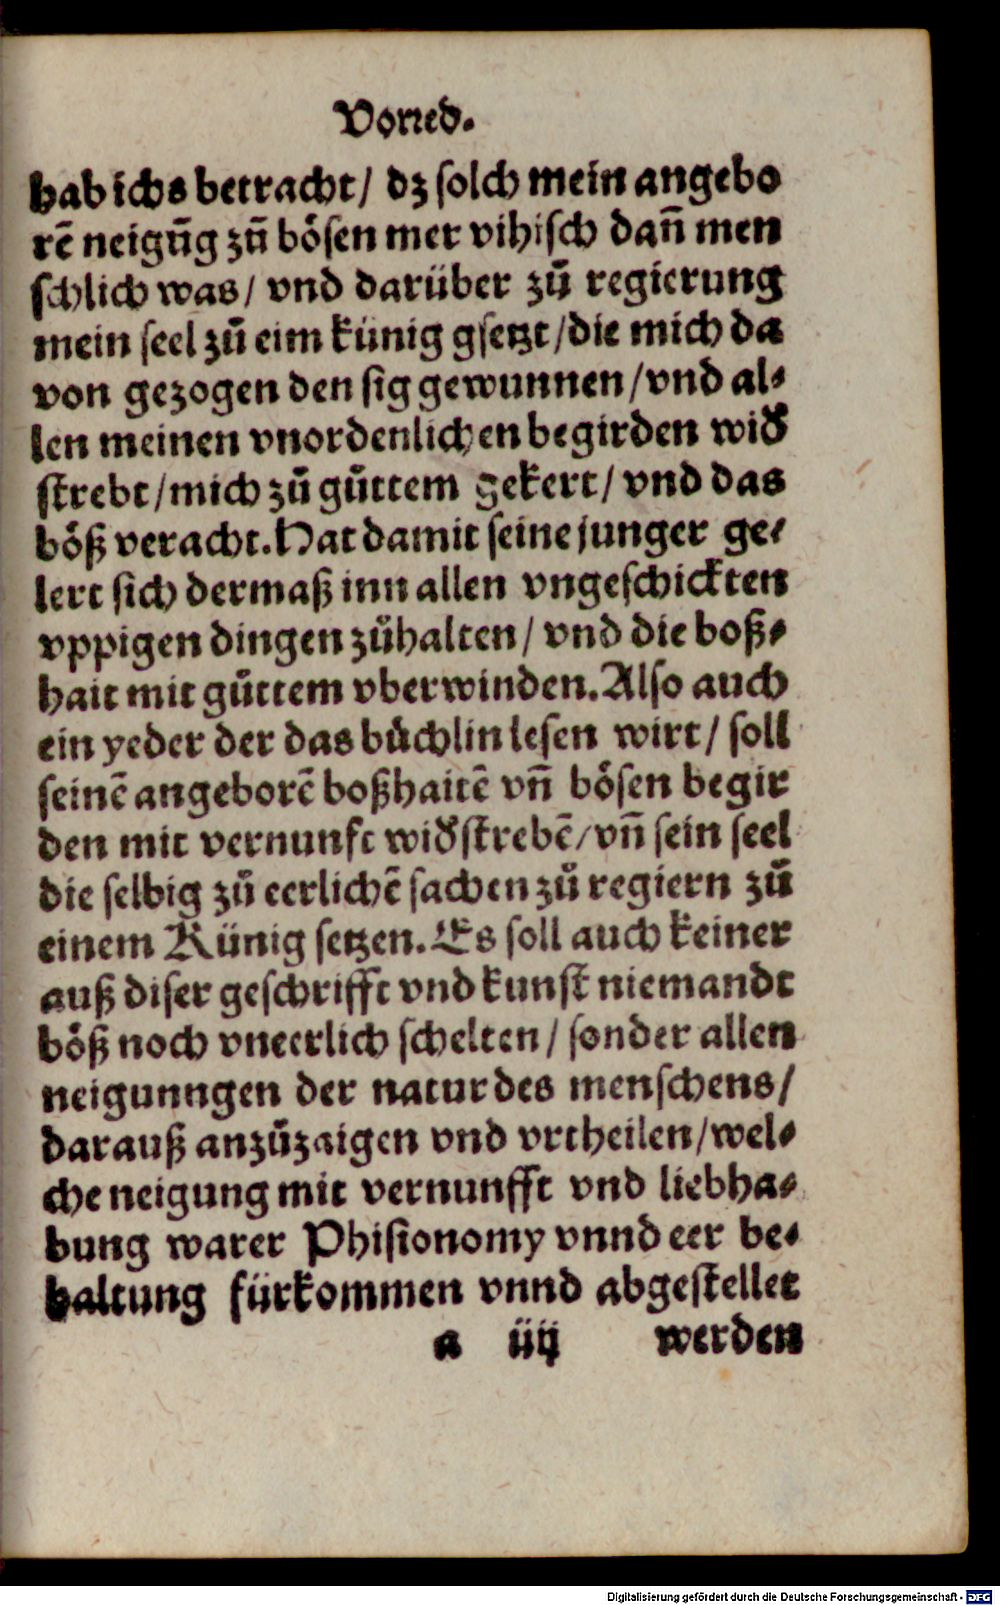 Vorred.
hab ichs betracht/ dz solch mein angebo
rē neigūg zū bösen mer vihisch dañ men
schlich was/ vnd darüber zů regierung
mein seel zů eim künig gsetzt/die mich da
von gezogen den sig gewunnen/vnd al⸗
len meinen vnordenlichen begirden wid᷑
strebt/mich zů gůttem gekert/ vnd das
böß veracht. Hat damit seine junger ge⸗
lert sich dermaß inn allen vngeschickten
vppigen dingen zůhalten/ vnd die boß⸗
hait mit gůttem vberwinden. Also auch
ein yeder der das bůchlin lesen wirt/ soll
seinē angeborē boßhaitē vñ bösen begir
den mit vernunft wid᷑strebē/vñ sein seel
die selbig zů eerlichē sachen zů regiern zů
einem Künig setzen. Es soll auch keiner
auß diser geschrifft vnd kunst niemandt
böß noch vneerlich schelten/ sonder allen
neigunngen der natur des menschens/
darauß anzůzaigen vnd vrtheilen/wel⸗
che neigung mit vernunfft vnd liebha⸗
bung warer Phisionomy vnnd eer be⸗
haltung fürkommen vnnd abgestellet
a iiij werden
Digitalisierung gefördert durch die Deutsche Forschungsgemeinschaft - DFG